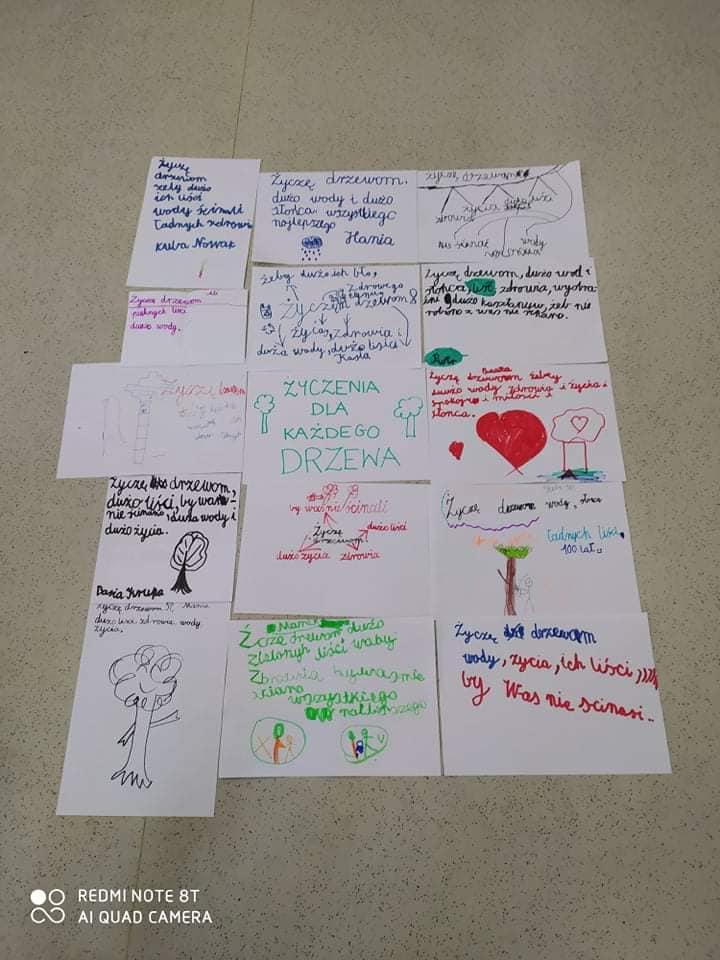 Życzę
drzewom
żeby dużo
ich liści
wody ścinali
Ładnych zdrowi
Kuba Nowak
Życzę drzewom,
dużo wody i dużo
słońca wszystkiego
najlepszego
Hania
życzę drzewom
życia liści
zdrowia
nie ścinać wody
Życzę drzewom
pięknych liści
dużo wody.
żeby dużo ich bło,
zdrowego
Życzę drzewom
życia, zdrowia i
dużo wody, dużo liści
Kasia
Życzę drzewom, dużo wod i
słońca, liś, zdrowia, wyobra
źni dużo kasztanów, żeb nie
robono z was nie rębano.
Życzę
ŻYCZENIA
DLA
KAŻDEGO
DRZEWA
Beata
Życzę drzewom żeby
dużo wody zdrowia i życia i
spokoju i miłości i
słonca.
Życzę drzewom,
dużo liści, by was
nie ścinano, dużo wody i
dużo życia.
Basia Krupa
by was nie ścinali
Życzę
drzewom
dużo liści
dużo życia
zdrowia
Życzę drzewom wody, słońca
Ładnych liści,
100 lat
życzę drzewom Mania
dużo liści zdrowia wody
życia.
Marek
Żczę drewom dużo
zielonyh liści waby
Zdrowia by was nie
ściano wszystkiego
nallepszego
X V
Życzę drzewom
wody, życia, ich liści,
by Was nie scinasi..
REDMI NOTE 8T
AI QUAD CAMERA